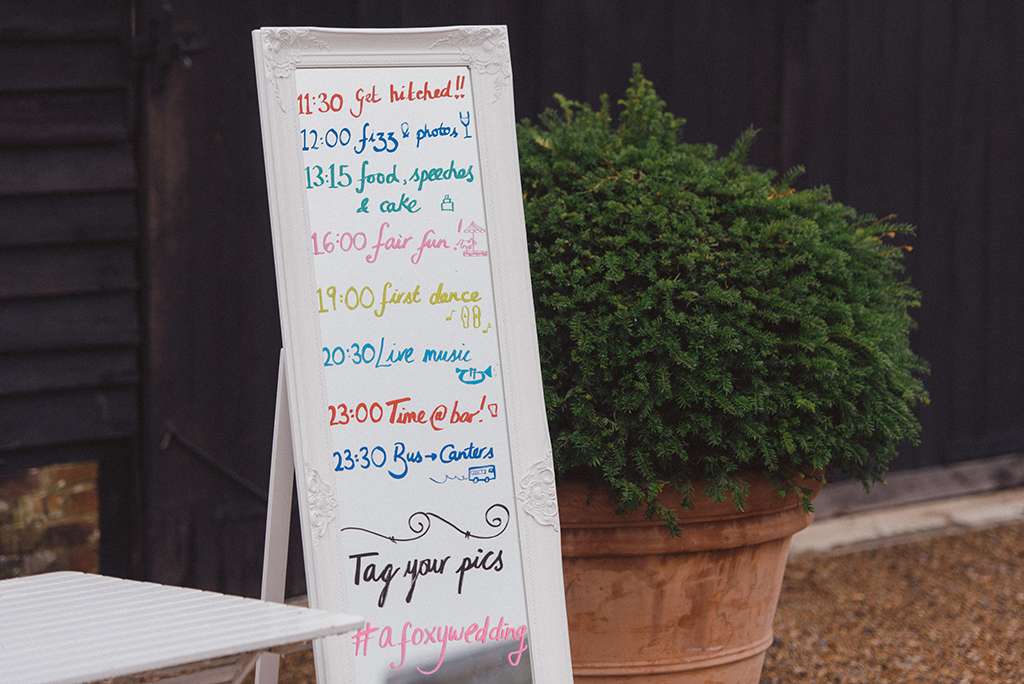 11:30 Get hitched!!
12:00 fizz & photos
13:15 food, speeches
& cake
16:00 fair fun!
19:00 first dance
20:30 Live music
23:00 Time @ bar!
23:30 Bus → Canters
Tag your pics
#afoxywedding